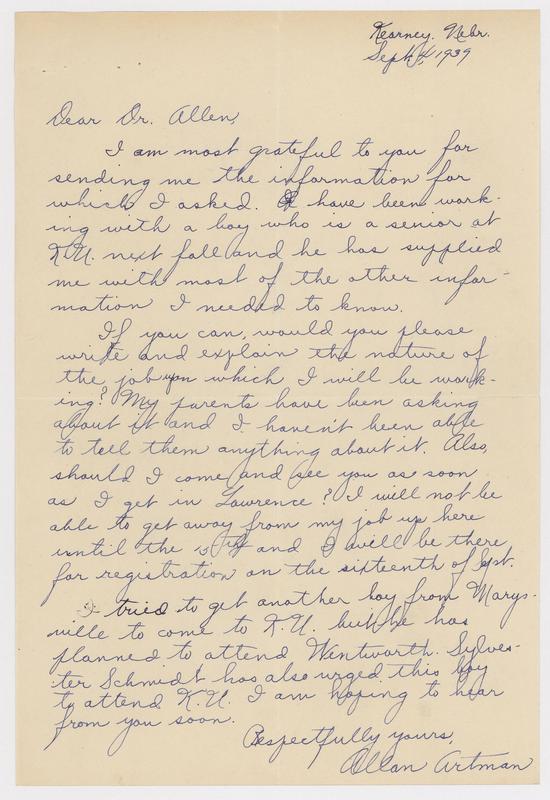 Kearney, Nebr.
Sept. 4, 1939
Dear Dr. Allen,
I am most grateful to you for
sending me the information for
which I asked. I have been work-
ing with a boy who is a senior at
K.U. next fall and he has supplied
me with most of the other infor-
mation I needed to know.
If you can, would you please
write and explain the nature of
the job upon which I will be work-
ing? My parents have been asking
about it and I haven't been able
to tell them anything about it. Also,
should I come and see you as soon
as I get in Lawrence? I will not be
able to get away from my job up here
until the 15th and I will be there
for registration on the sixteenth of Sept.
I tried to get another boy from Marys-
ville to come to K.U. but he has
planned to attend Wentworth. Sylves-
ter Schmidt has also urged this boy
to attend K.U. I am hoping to hear
from you soon.
Respectfully yours,
Allan Artman